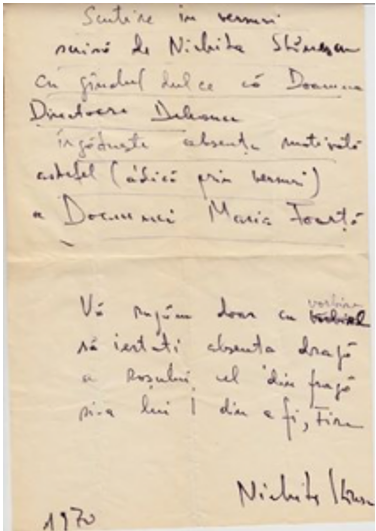 Scutire în versuri
scrisă de Nichita Stănescu
cu gîndul dulce că Doamna
Directoare
îngăduește absența motivată
astfel (adică prin versuri)
a Doamnei Maria Foarță
Vă rugăm doar cu vorbire
să iertați absența dragă
a roșului cel din fragă
și-a lui I din a fi, Fire
Nichita Stănescu
1970